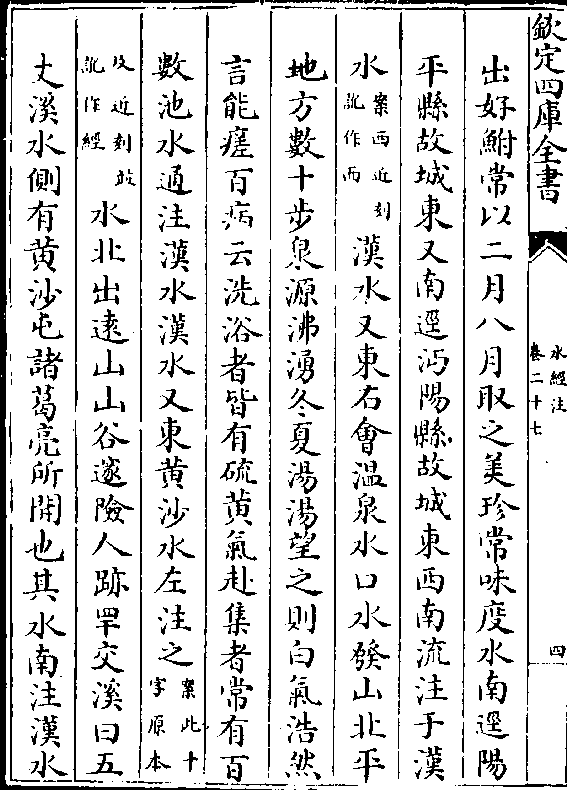 欽定四庫全書
水經注
卷二十七
四
出好鮒常以二月八月取之美珍常味度水南逕陽
平縣故城東又南逕沔陽縣故城東西南流注于漢
水案西近刻訛作而漢水又東右會溫泉水口水發山北平
地方數十步泉源沸湧冬夏湯湯望之則白氣浩然
言能瘥百病云洗浴者皆有硫黄氣赴集者常有百
數池水通注漢水漢水又東黄沙水左注之案此十字原本
及近刻並訛作經水北出遠山山谷邃險人跡罕交溪曰五
丈溪水側有黄沙屯諸葛亮所開也其水南注漢水